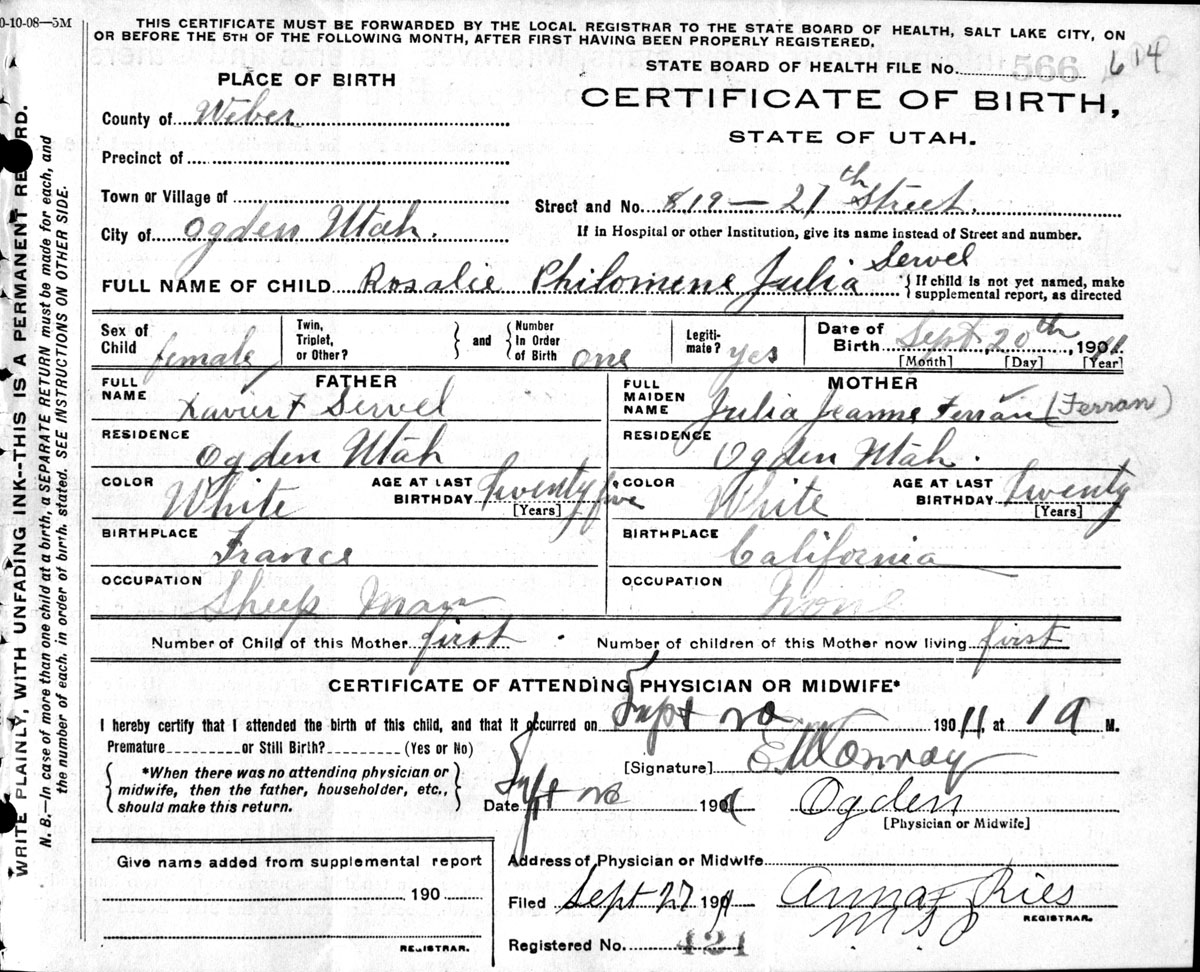 0-10-08—5M
THIS CERTIFICATE MUST BE FORWARDED BY THE LOCAL REGISTRAR TO THE STATE BOARD OF HEALTH, SALT LAKE CITY, ON
OR BEFORE THE 5TH OF THE FOLLOWING MONTH, AFTER FIRST HAVING BEEN PROPERLY REGISTERED.
STATE BOARD OF HEALTH FILE No. 566 614
PLACE OF BIRTH
CERTIFICATE OF BIRTH,
STATE OF UTAH.
County of Weber
Precinct of
Town or Village of
Street and No. 819—27th Street.
City of Ogden Utah.
If in Hospital or other Institution, give its name instead of Street and number.
FULL NAME OF CHILD Rosalie Philomene Julia Servel
{ If child is not yet named, make
supplemental report, as directed
Sex of Child female
Twin, Triplet, or Other? } and { Number In Order of Birth one
Legiti-mate? yes
Date of Birth Sept, 20th, 1911
[Month] [Day] [Year]
FATHER
FULL NAME Xavier F Servel
RESIDENCE Ogden Utah
COLOR White AGE AT LAST BIRTHDAY Twenty five
[Years]
BIRTHPLACE France
OCCUPATION Sheep Man
MOTHER
FULL MAIDEN NAME Julia Jeanne Ferran (Ferran)
RESIDENCE Ogden Utah.
COLOR White AGE AT LAST BIRTHDAY Twenty
[Years]
BIRTHPLACE California
OCCUPATION None
Number of Child of this Mother first . Number of children of this Mother now living first
CERTIFICATE OF ATTENDING PHYSICIAN OR MIDWIFE*
I hereby certify that I attended the birth of this child, and that it occurred on Sept 20 1911, at 1 a M.
Premature or Still Birth? (Yes or No)
{ *When there was no attending physician or
midwife, then the father, householder, etc.,
should make this return. }
[Signature] E Conroy
Date Sept 20 190 Ogden
[Physician or Midwife]
Give name added from supplemental report
190
REGISTRAR.
Address of Physician or Midwife
Filed Sept 27 1911 Anna F Ries
REGISTRAR.
Registered No. 421
WRITE PLAINLY, WITH UNFADING INK--THIS IS A PERMANENT RECORD.
N. B.—In case of more than one child at a birth, a SEPARATE RETURN must be made for each, and
the number of each, in order of birth, stated. SEE INSTRUCTIONS ON OTHER SIDE.